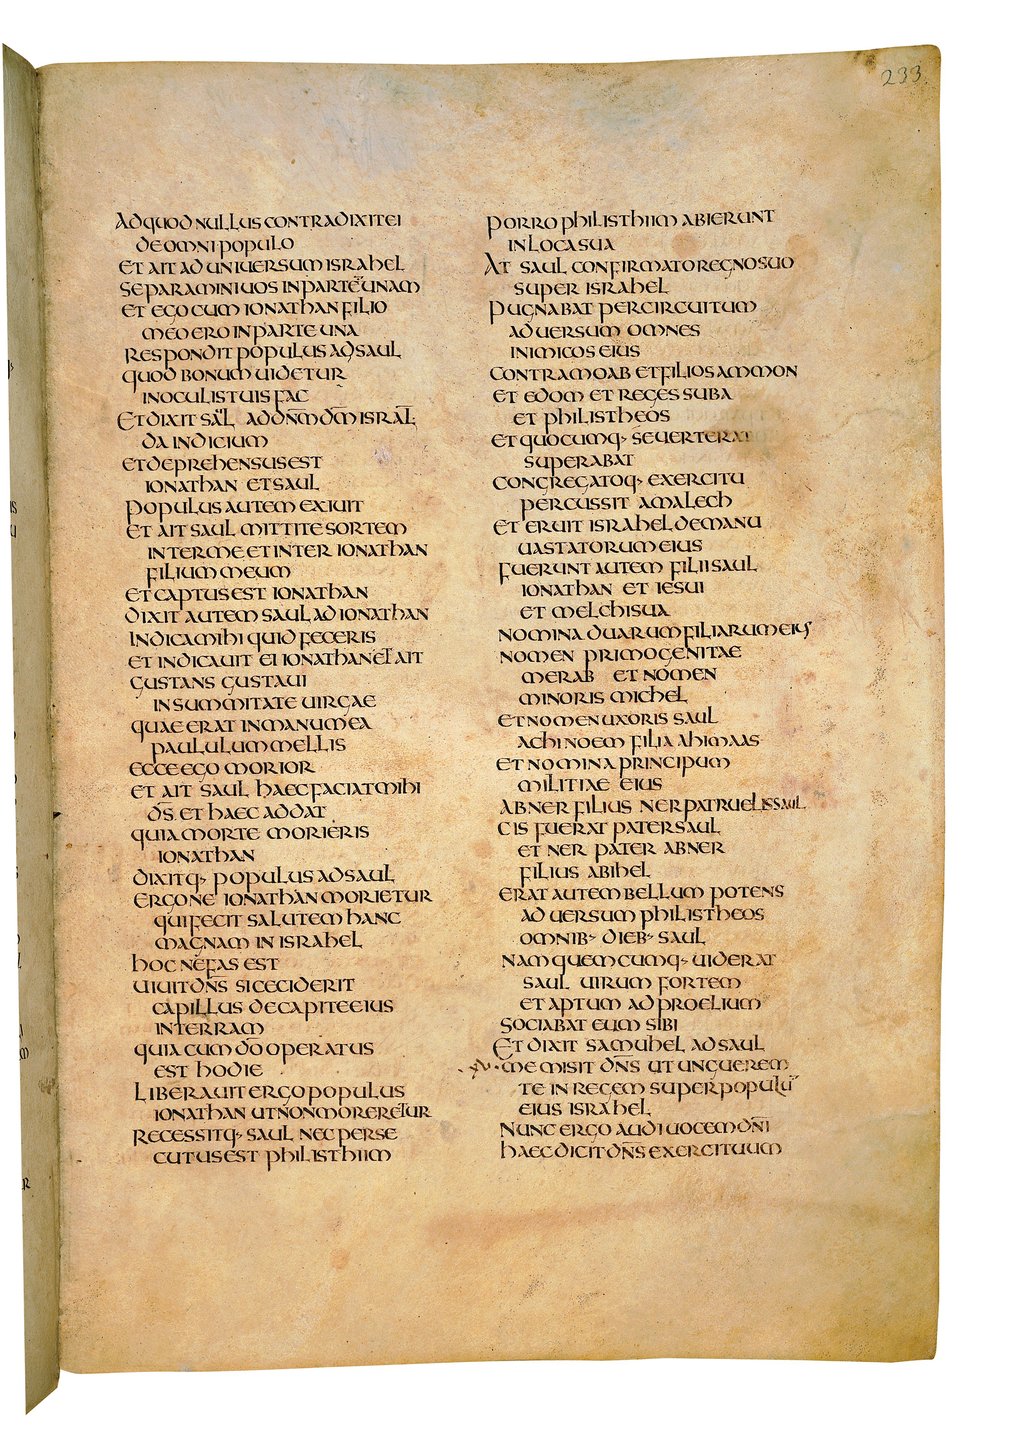 233
Adquod nullus contradixit ei
de omni populo
et ait ad uniuersum israhel
separamini uos in parte unam
et ego cum ionathan filio
meo ero in parte una
respondit populus ad saul
quod bonum uidetur
in oculis tuis fac
Et dixit saul ad dn̅m dm̅ isral̅
da indicium
et deprehensus est
ionathan et saul
populus autem exiuit
et ait saul mittite sortem
inter me et inter ionathan
filium meum
et captus est ionathan
dixit autem saul ad ionathan
indica mihi quid feceris
et indicauit ei ionathan et ait
gustans gustaui
in summitate uirgae
quae erat in manu mea
paululum mellis
ecce ego morior
et ait saul haec faciat mihi
ds̅ et haec addat
quia morte morieris
ionathan
dixitq· populus ad saul
ergone ionathan morietur
qui fecit salutem hanc
magnam in israhel
hoc nefas est
uiuit dn̅s si ceciderit
capillus de capite eius
in terram
quia cum do̅ operatus
est hodie
liberauit ergo populus
ionathan ut non moreretur
recessitq· saul nec perse
cutus est philisthiim
porro philisthiim abierunt
in loca sua
At saul confirmato regno suo
super israhel
pugnabat per circuitum
aduersum omnes
inimicos eius
contra moab et filios ammon
et edom et reges suba
et philistheos
et quocumq· se uerterat
superabat
congregatoq· exercitu
percussit amalech
et eruit israhel de manu
uastatorum eius
fuerunt autem filii saul
ionathan et iesui
et melchisua
nomina duarum filiarum eius
nomen primogenitae
merab et nomen
minoris michel
et nomen uxoris saul
achinoem filia ahimaas
et nomina principum
militiae eius
abner filius ner patruelis saul
cis fuerat pater saul
et ner pater abner
filius abihel
erat autem bellum potens
aduersum philistheos
omnib· dieb· saul
nam quemcumq· uiderat
saul uirum fortem
et aptum ad proelium
sociabat eum sibi
Et dixit samuhel ad saul
me misit dn̅s ut unguerem
te in regem super populu̅
eius israhel
nunc ergo audi uocem dn̅i
haec dicit dn̅s exercituum